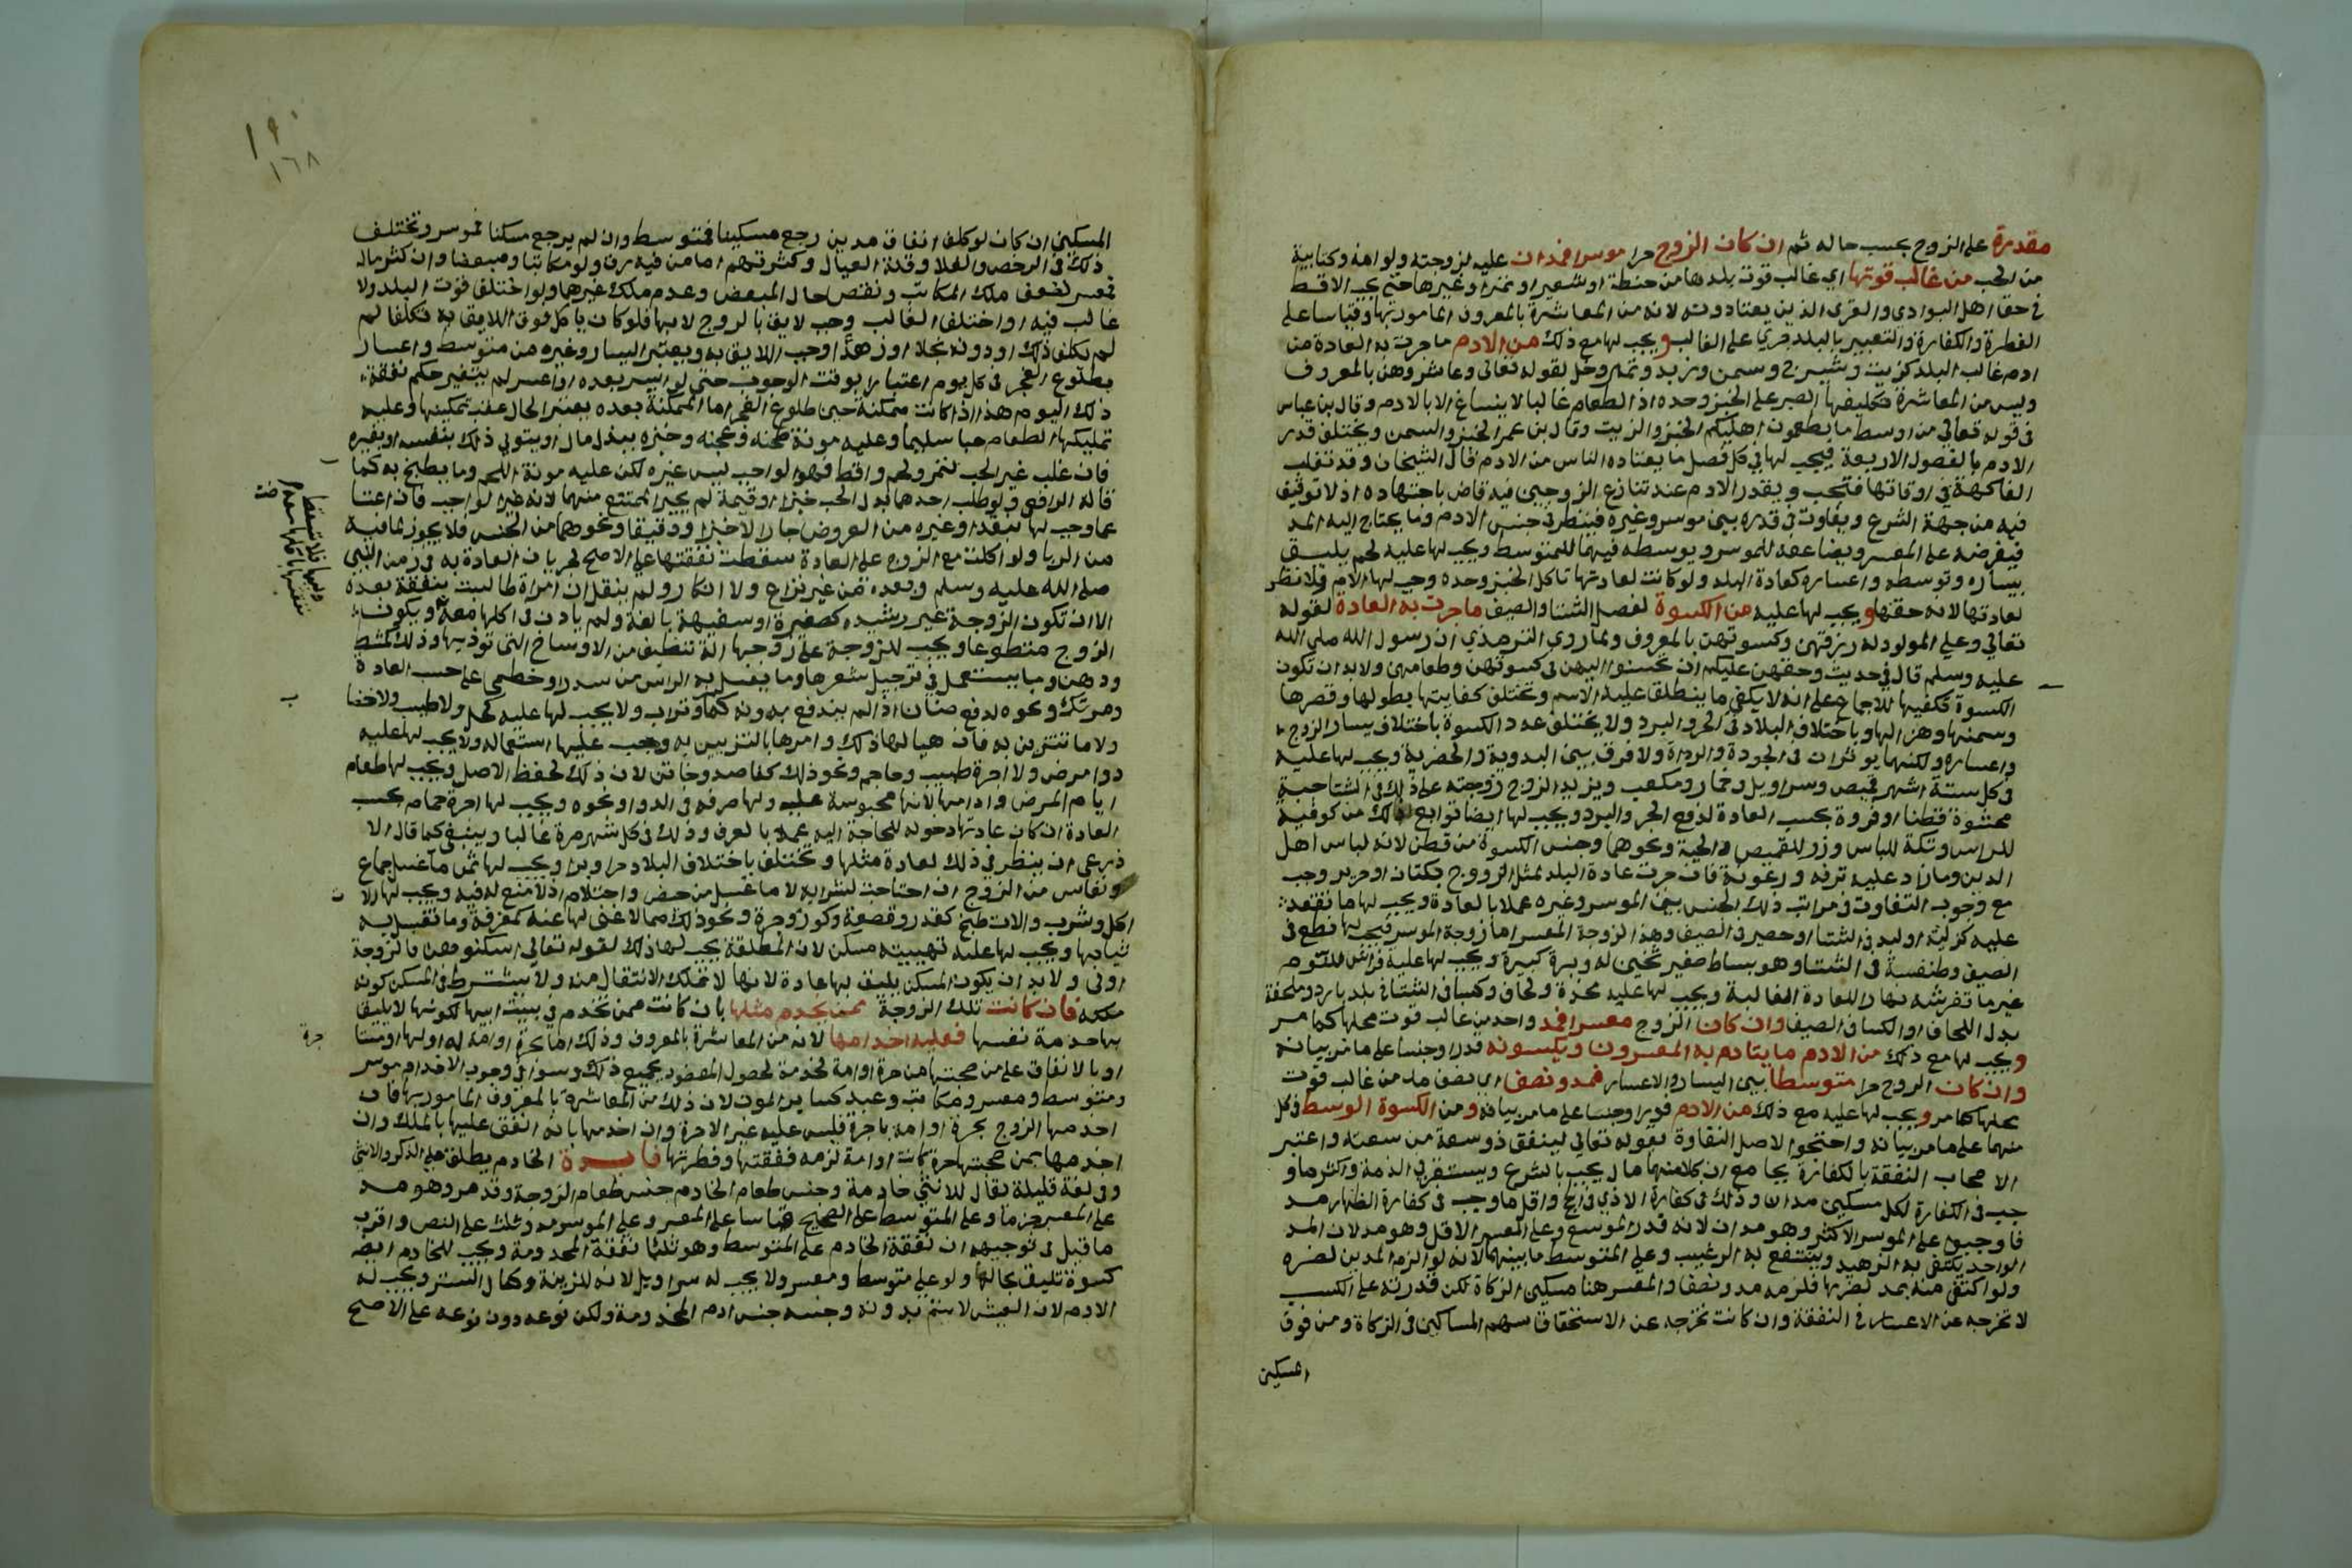 مقدرة على الزوج بحسب حاله ثم ان كان الزوج حرا موسرا فمدان عليه لزوجته ولو امة وكتابية
من الحب من غالب قوتها اي غالب قوت بلدها من حنطة او شعير او تمر او غيرها حتى يجب الاقط
في حق اهل البوادي والقرى الذين يعتادونه لانه من المعاشرة بالمعروف المامور بها وقياسا على
الفطرة والكفارة والتعبير بالبلد جري على الغالب ويجب لها مع ذلك من الادم ما جرت به العادة من
ادم غالب البلد كزيت وشيرج وسمن وزبد وتمر وخل لقوله تعالى وعاشروهن بالمعروف
وليس من المعاشرة تكليفها الصبر على الخبز وحده اذ الطعام غالبا لا ينساغ الا بالادم وقال بن عباس
في قوله تعالى من اوسط ما تطعمون اهليكم الخبز والزيت وقال بن عمر الخبز والسمن ويختلف قدر
الادم بالفصول الاربعة فيجب لها في كل فصل ما يعتاده الناس من الادم قال الشيخان وقد تغلب
الفاكهة في اوقاتها فتجب ويقدر الادم عند تنازع الزوجين فيه قاض باجتهاده اذ لا توقيف
فيه من جهة الشرع ويفاوت في قدره بين موسر وغيره فينظر في جنس الادم وما يحتاج اليه المد
فيفرضه على المعسر ويضاعفه للموسر ويوسطه فيهما للمتوسط ويجب لها عليه لحم يليق
بيساره وتوسطه واعساره كعادة البلد ولو كانت لعادتها تاكل الخبز وحده وجب لها الادم ولا نظر
لعادتها لانه حقها ويجب لها عليه من الكسوة لفصل الشتا والصيف ما جرت به العادة لقوله
تعالى وعلى المولود له رزقهن وكسوتهن بالمعروف ولما روى الترمذي ان رسول الله صلى الله
عليه وسلم قال في حديث وحقهن عليكم ان تحسنوا اليهن في كسوتهن وطعامهن ولا بد ان تكون
الكسوة تكفيها للاجماع على انه لا يكفي ما ينطلق عليه الاسم وتختلف كفايتها بطولها وقصرها
وسمنها وهزالها وباختلاف البلاد في الحر والبرد ولا يختلف عدد الكسوة باختلاف يسار الزوج
واعساره ولكنهما يوثران في الجودة والرداة ولا فرق بين البدوية والحضرية ويجب لها عليه
في كل ستة اشهر قميص وسراويل وخمار ومكعب ويزيد الزوج زوجته على ذلك في الشتا جبة
محشوة قطنا او فروة بحسب العادة لدفع الحر والبرد ويجب لها ايضا توابع ذلك من كوفية
للراس وتكة للباس وزر للقميص والجبة ونحوهما وجنس الكسوة من قطن لانه لباس اهل
الدين وما زاد عليه ترفه ورعونة فان جرت عادة البلد لمثل الزوج بكتان او حرير وجب
مع وجوب التفاوت في مراتب ذلك الجنس بين الموسر وغيره عملا بالعادة ويجب لها ما تقعد
عليه كزلية او لبد في الشتا او حصير في الصيف وهذا لزوجة المعسر اما زوجة الموسر فيجب لها نطع في
الصيف وطنفسة في الشتا وهو بساط صغير ثخين له وبرة كبيرة ويجب لها عليه فراش للنوم
غير ما تفرشه نهارا للعادة الغالبة ويجب لها عليه مخدة ولحاف وكسا في الشتا في بلد بارد وملحفة
بدل اللحاف او الكسا في الصيف وان كان الزوج معسرا فمد واحد من غالب قوت محلها كما مر
ويجب لها مع ذلك من الادم ما يتادم به المعسرون ويكسونه قدرا وجنسا على ما مر بيانه
وان كان الزوج حرا متوسطا بين اليسار والاعسار فمد ونصف اي نصف مد من غالب قوت
محلها كما مر ويجب لها عليه مع ذلك من الادم قدرا وجنسا على ما مر بيانه ومن الكسوة الوسط في كل
منهما على ما مر بيانه واحتجوا لاصل التفاوة بقوله تعالى لينفق ذو سعة من سعته واعتبر
الاصحاب النفقة بالكفارة بجامع ان كلا منهما مال يجب بالشرع ويستقر في الذمة واكثر ما و
جب في الكفارة لكل مسكين مدان وذلك في كفارة الاذي في الحج واقل ما وجب في كفارة الظهار مد
فاوجبوا على الموسر الاكثر وهو مدان لانه قدر الموسع وعلى المعسر الاقل وهو مد لان المد
الواحد يكتفي به الزهيد وينتفع به الرغيب وعلى المتوسط ما بينهما لانه لو الزم المدين لضره
ولو اكتفى منه بمد لضرها فلزمه مد ونصف والمعسر هنا مسكين الزكاة لكن قدرته على الكسب
لا تخرجه عن الاعسار في النفقة وان كانت تخرجه عن الاستحقاق سهم المساكين في الزكاة ومن فوق
المسكين
١٩٠
١٦٨
المسكين ان كان لو كلف انفاق مدين رجع مسكينا فمتوسط وان لم يرجع مسكنا فموسر وتختلف
ذلك في الرخص والغلا وقلة العيال وكثرتهم اما من فيه رق ولو مكاتبا ومبعضا وان كثر ماله
فمعسر لضعف ملك المكاتب ونقص حال المبعض وعدم ملك غيرهما ولو اختلف قوت البلد ولا
غالب فيه او اختلف الغالب وجب لايق بالزوج لا بها فلو كان ياكل فوق اللايق به تكلفا لم
لم يكلف ذلك او دونه بخلا او زهدا وجب اللايق به ويعتبر اليسار وغيره من متوسط واعسار
بطلوع الفجر في كل يوم اعتبارا بوقت الوجوب حتى لو ايسر بعده او اعسر لم يتغير حكم نفقة
ذلك اليوم هذا اذا كانت ممكنة حين طلوع الفجر اما الممكنة بعده يعتبر الحال عقب تمكينها وعليه
تمليكها الطعام حبا سليما وعليه مونة طحنه وعجنه وخبزه ببذل مال او يتولى ذلك بنفسه او بغيره
فان غلب غير الحب كتمر ولحم واقط فهو الواجب ليس غيره لكن عليه مونة اللحم وما يطبخ به كما
قاله الرافعي ولو طلب احدهما بدل الحب خبزا او قيمة لم يجبر الممتنع منهما لانه غير الواجب فان اعتا
عما وجب لها نقدا وغيره من العروض جاز الا خبزا ودقيقا ونحوهما من الجنس فلا يجوز لما فيه
من الربا ولو اكلت مع الزوج على العادة سقطت نفقتها على الاصح لجريان العادة به في زمن النبي
صلى الله عليه وسلم وبعده من غير نزاع ولا انكار ولم ينقل ان امراة طالبت بنفقة بعده
الا ان تكون الزوجة غير رشيدة كصغيرة او سفيهة بالغة ولم ياذن في اكلها معه ويكون
الزوج متطوعا ويجب للزوجة على زوجها الة تنظيف من الاوساخ التي توذيها وذلك كمشط
ودهن وما يستعمل في ترجيل شعرها وما يغسل به الراس من سدر او خطمي على حسب العادة
ومرتك ونحوه لدفع صنان اذا لم يندفع بدونه كما وتراب ولا يجب لها عليه كحل ولا طيب ولا خضا
ولا ما تتزين به فان هيا لها ذلك وامرها بالتزيين به وجب عليها استعماله ولا يجب لها عليه
دوا مرض ولا اجرة طبيب وحاجم ونحو ذلك كفاصد وخاتن لان ذلك لحفظ الاصل ويجب لها طعام
ايام المرض وادامها لانها محبوسة عليه ولها صرفه في الدوا ونحوه ويجب لها اجرة حمام بحسب
العادة ان كان عادتها دخوله للحاجة اليه عملا بالعرف وذلك في كل شهر مرة غالبا وينبغي كما قال الا
ذرعي ان ينظر في ذلك لعادة مثلها وتختلف باختلاف البلاد حرا وبردا ويجب لها ثمن ما غسل جماع
ونفاس من الزوج ان احتاجت لشرايه لا ما غسل من حيض واحتلام اذ لا صنع له فيه ويجب لها الا
ت
اكل وشرب والات طبخ كقدر وقصعة وكوز وجرة ونحو ذلك مما لا غنى لها عنه كمغرفة وما تغسل به
ثيابها ويجب لها عليه تهييته مسكن لان المطلقة يجب لها ذلك لقوله تعالى اسكنوهن فالزوجة
اولى ولا بد ان يكون المسكن يليق بها عادة لانها لا تملك الانتقال منه ولا يشترط في المسكن كونه
ملكه فان كانت تلك الزوجة ممن يخدم مثلها بان كانت ممن تخدم في بيت ابيها لكونها لا يليق
بها خدمة نفسها فعليه اخدامها لانه من المعاشرة بالمعروف وذلك اما بحرة او امة له او لها او مستا
جرة
او بالانفاق على من صحبتها من حرة او امة لخدمة لحصول المقصود بجميع ذلك وسوا في وجوب الاخدام موسر
ومتوسط ومعسر ومكاتب وعبد كساير المون لان ذلك من المعاشرة بالمعروف المامور بها فان
اخدمها الزوج بحرة او امة باجرة فليس عليه غير الاجرة وان اخدمها بامة انفق عليها بالملك وان
اخدمها بمن صحبتها حرة كانت او امة لزمه نفقتها وفطرتها فايدة الخادم يطلق على الذكر والانثى
وفي لغة قليلة يقال للانثى خادمة وجنس طعام الخادم جنس طعام الزوجة وقد مر وهو مد
على المعسر جزما وعلى المتوسط على الصحيح قياسا على المعسر وعلى الموسر مد وثلث على النص واقرب
ما قيل في توجيهه ان نفقة الخادم على المتوسط وهو ثلثا نفقة المخدومة ويجب للخادم ايضا
كسوة تليق بحالها ولو على متوسط ومعسر ولا يجب له سراويل لانه للزينة وكمال الستر ويجب له
الادم لان العيش لا يتم بدونه وجنسه جنس ادم المخدومة ولكن نوعه دون نوعه على الاصح